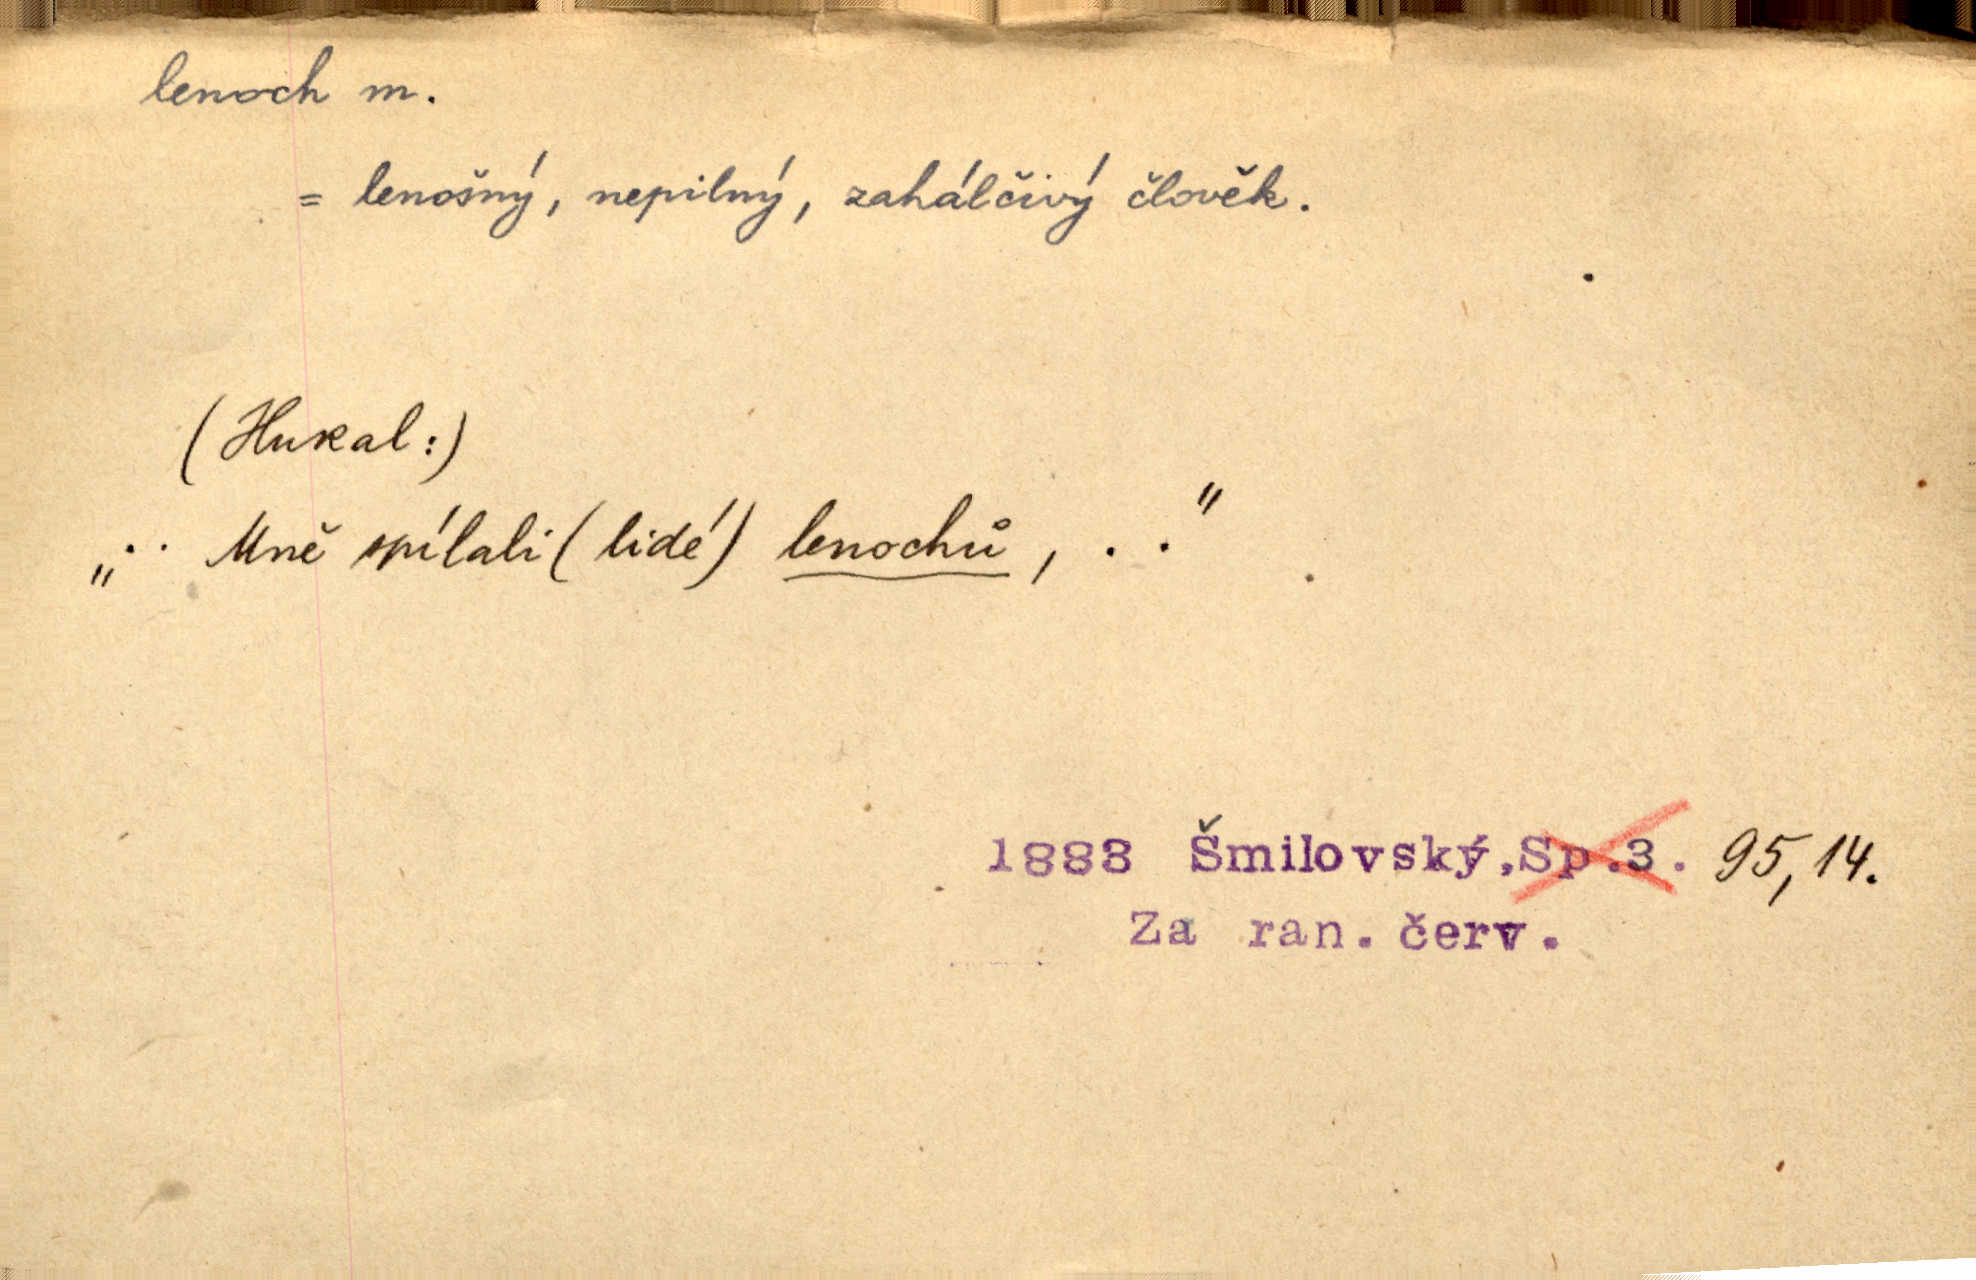 lenoch m.
= lenošný, nepilný, zahálčivý člověk.
(Hukal:)
„.. Mně spílali (lidé) lenochů, . ."
1883 Šmilovský, Sp.3. 95, 14.
Za ran. červ.